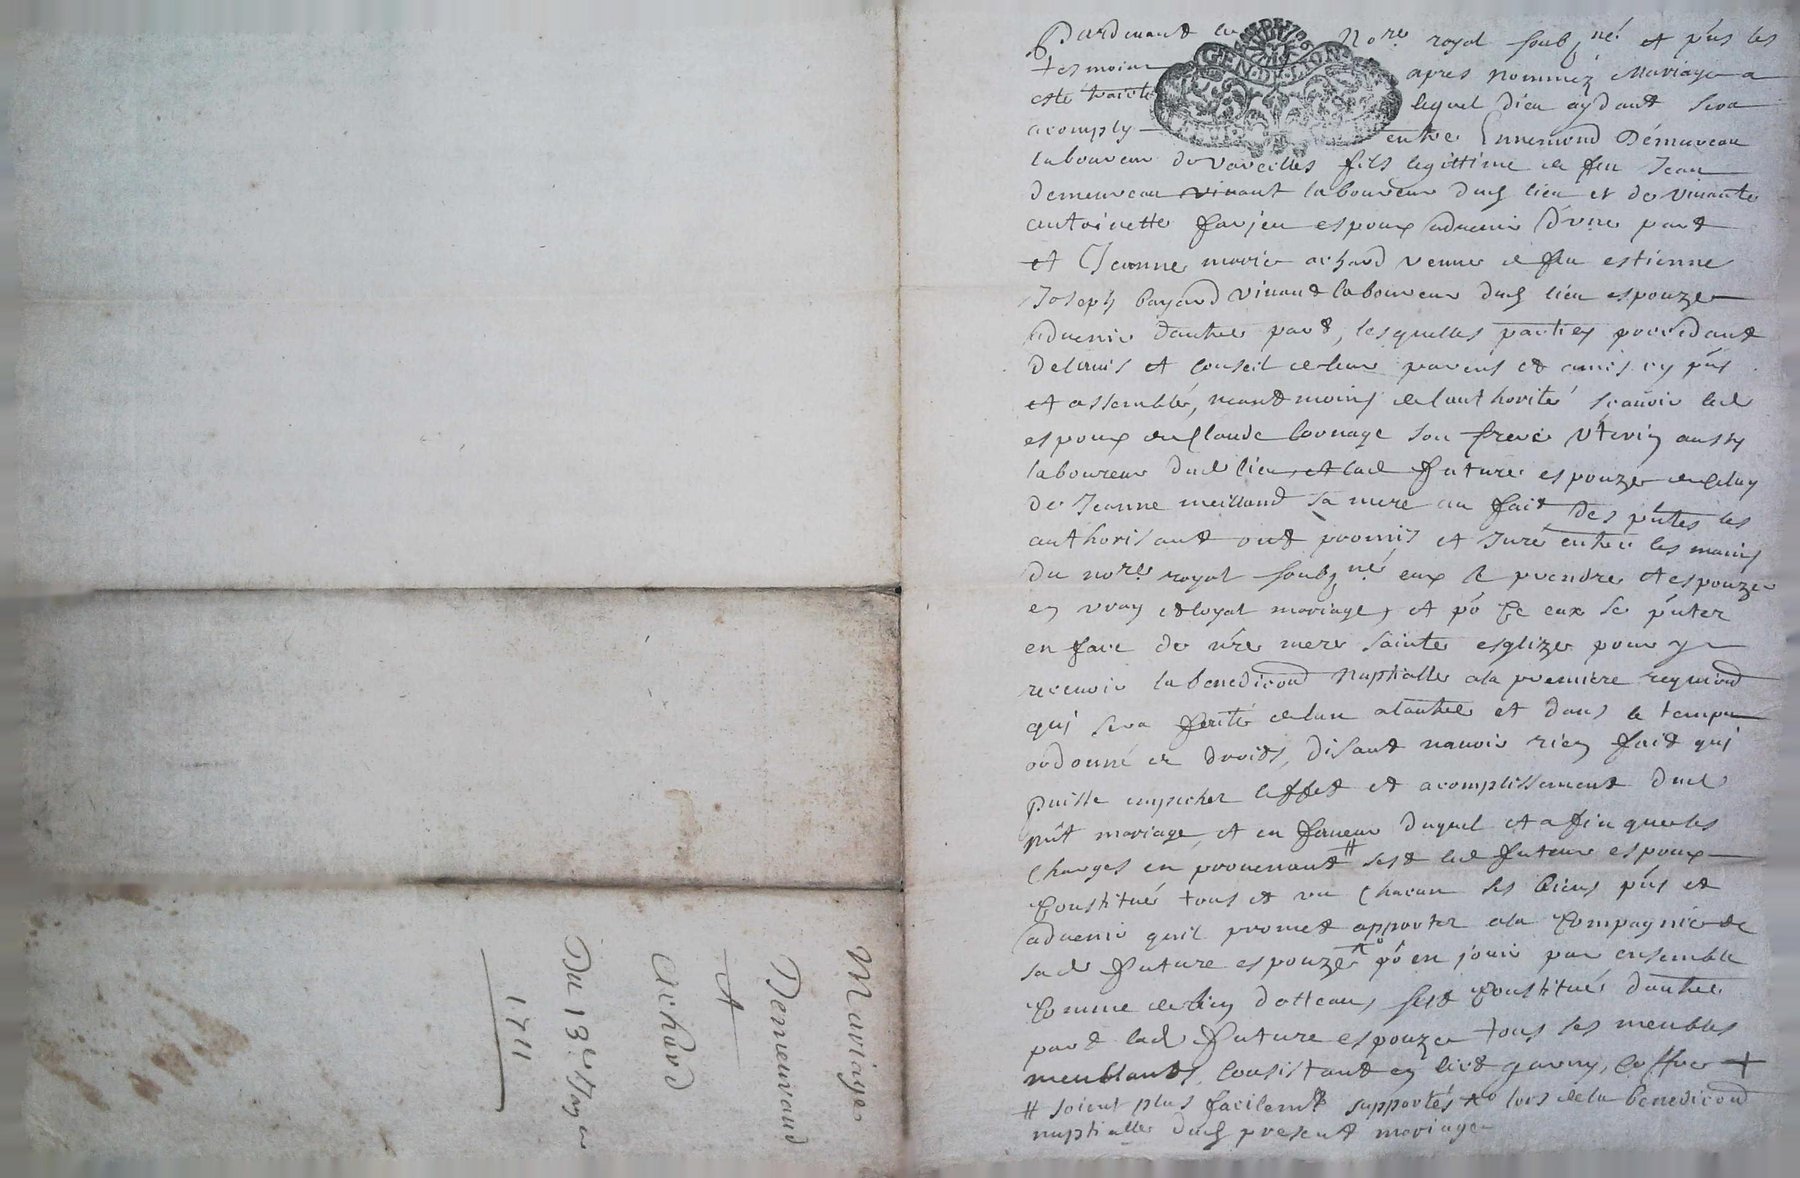 Pardevant le Nore royal soubzné et pñs les
tesmoins apres nommez Mariage a
este traicté lequel dieu aydant sera
acomply entre Ennemond Démureau
laboureur de Vareilles fils legittime de feu Jean
demeureau vivant laboureur duq lieu et de vivante
antoinette farjeu espoux advenir d'vne part
et Jeanne marie achard veuue de feu estienne
Joseph bayard vivant laboureur duq lieu espouze
advenir dautre part, lesquelles parties procedant
de lauis et conseil de leur parens et amis icy pñs
et assemblés, neantmoins de lauthorité scauoir led
espoux de Claude Cornage son frere vterin aussy
laboureur dud lieu, et lad future espouze de celuy
de Jeanne meilland sa mere au fait des pñtes les
authorisant ont promis et Juré entre les mains
du nore royal soubzné eux se prendre et espouzer
en vray et loyal mariage, et po ce eux se pñter
en face de nre mere sainte esglize pour y
recevoir la benediond nuptialle a la premiere requiond
qui sera faite de lun a lautre et dans le temps
ordonné de droits, disant n'auoir rien fait qui
puisse empecher leffet et acomplissement dud
pñt mariage, et en faueur duquel et afin que les
charges en prouenant # sest led futeur espoux
Constitué tous et vn chacun ses biens pñs et
advenir quil promet apporter a la Compagnie de
sad future espouze po en jouir par ensemble
Comme de bien dotteaux, sest Constitué dautre
part lad future espouze tous ses meubles
meublants, Consistant en lict garny, coffre +
# soient plus facilemt supportés lors de la benediond
nuptialle duq present mariage
Mariage
Demeuraud
et
Achard
Du 13e May
1711
GEN·DE·LION